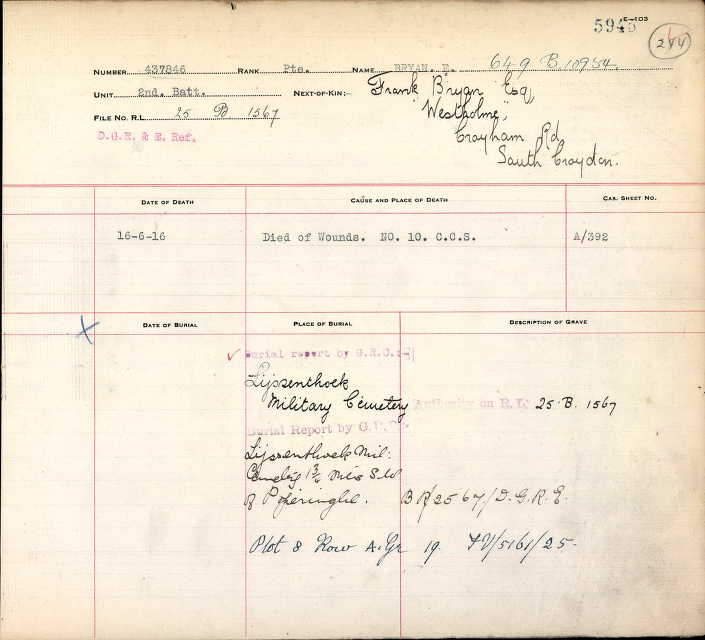 E-103
244
NUMBER 437846 RANK Pte. NAME BRYAN. E. 649 B.10954.
UNIT 2nd. Batt. NEXT-OF-KIN:- Frank Bryan Esq,
FILE NO. R.L. 25 B 1567 "Westholme",
D.G.R. & E. Ref. Croyham Rd
South Croydon.
DATE OF DEATH CAUSE AND PLACE OF DEATH CAS. SHEET NO.
16-6-16 Died of Wounds. NO. 10. C.C.S. A/392
DATE OF BURIAL PLACE OF BURIAL DESCRIPTION OF GRAVE
Burial report by G.R.C.
Lijssenthoek
Military Cemetery Authority on R.L. 25 B. 1567
Burial Report by
Lijssenthoek Mil:
Cemetery Miles S.W
of Poperinghe. B R/2567/D.G.R.E.
Plot 8 Row A. Gr 19. /5161/25-